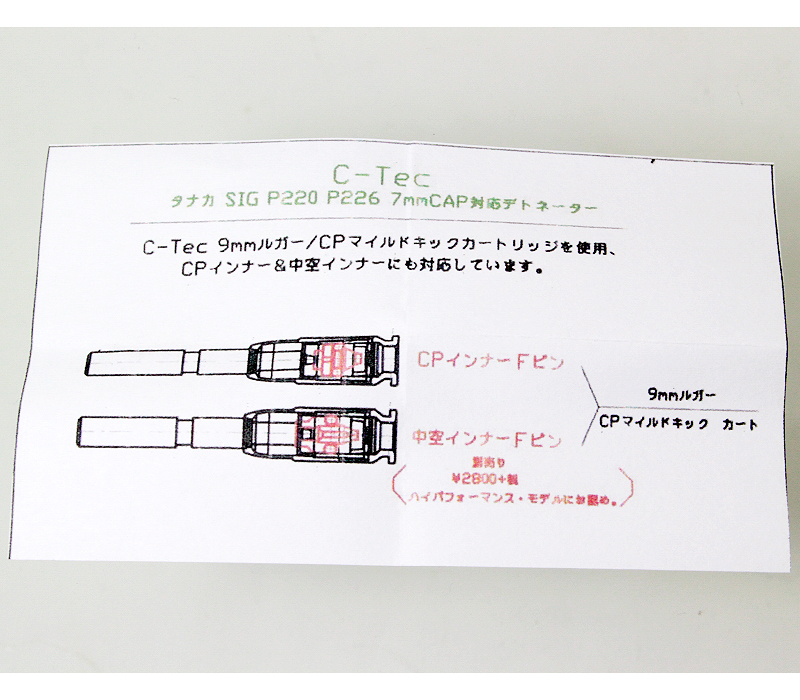 C-Tec
タナカ SIG P220 P226 7mmCAP対応デトネーター
C-Tec 9mmルガー/CPマイルドキックカートリッジを使用、
CPインナー&中空インナーにも対応しています。
CPインナーFピン
9mmルガー
CPマイルドキック カート
中空インナーFピン
別売り
¥2800+税
ハイパフォーマンス・モデルにお薦め。